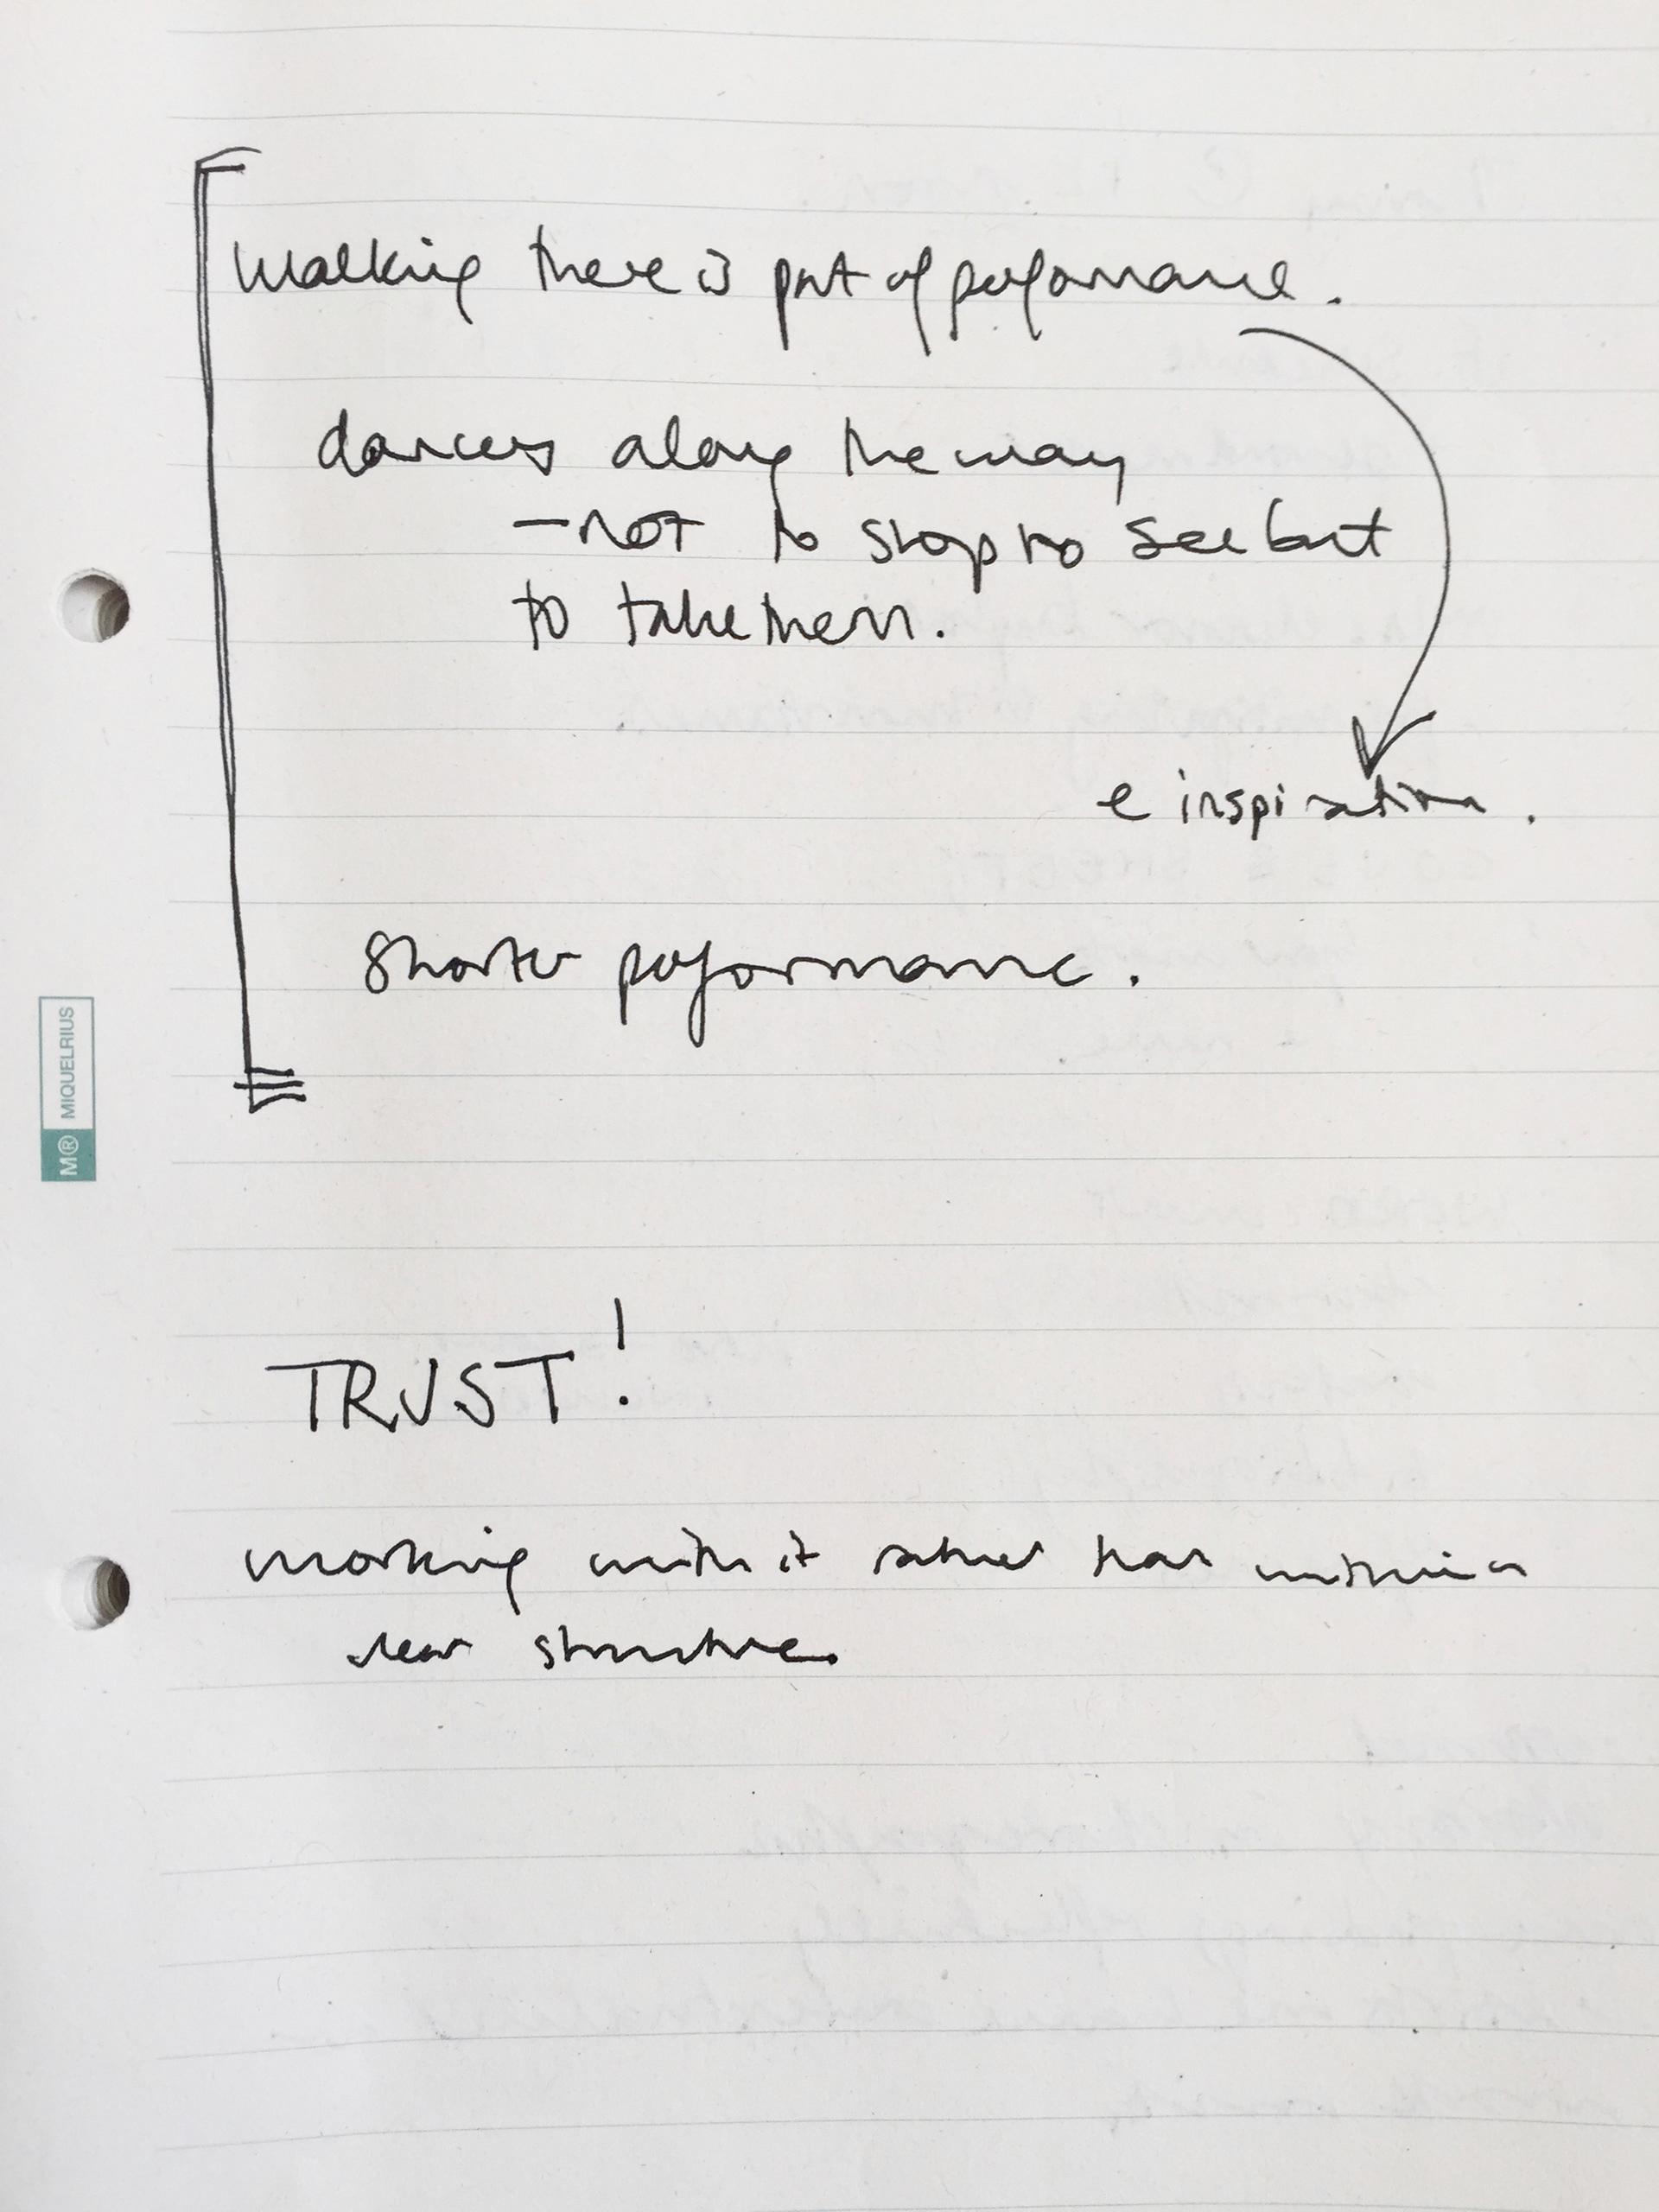 Walking there is part of performance.
dances along the way
- not to stop to see but
to take them.
e inspiration.
Shorter performance.
M® MIQUELRIUS
TRUST!
working with it rather than within a
new structure.